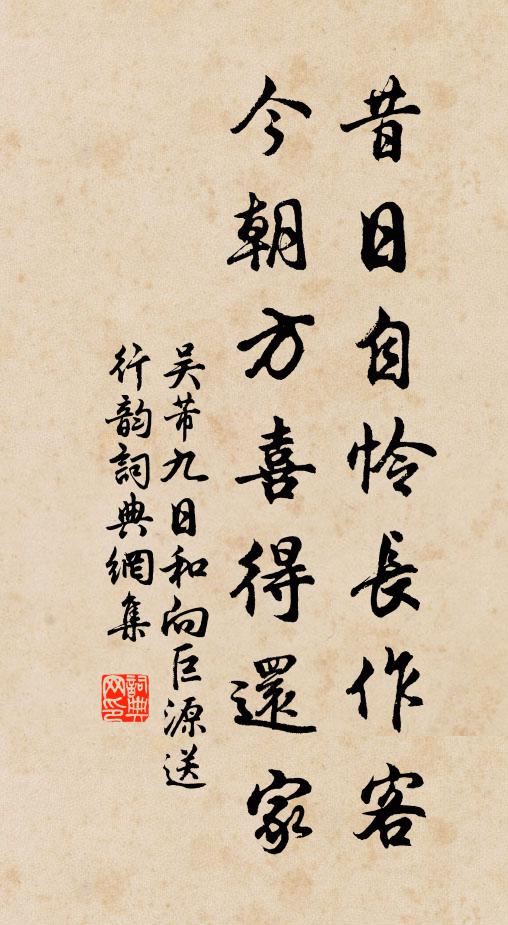 昔日自怜長作客
今朝方喜得還家
吴芾九日和向巨源送
行韵詞典網集
詞典
网印